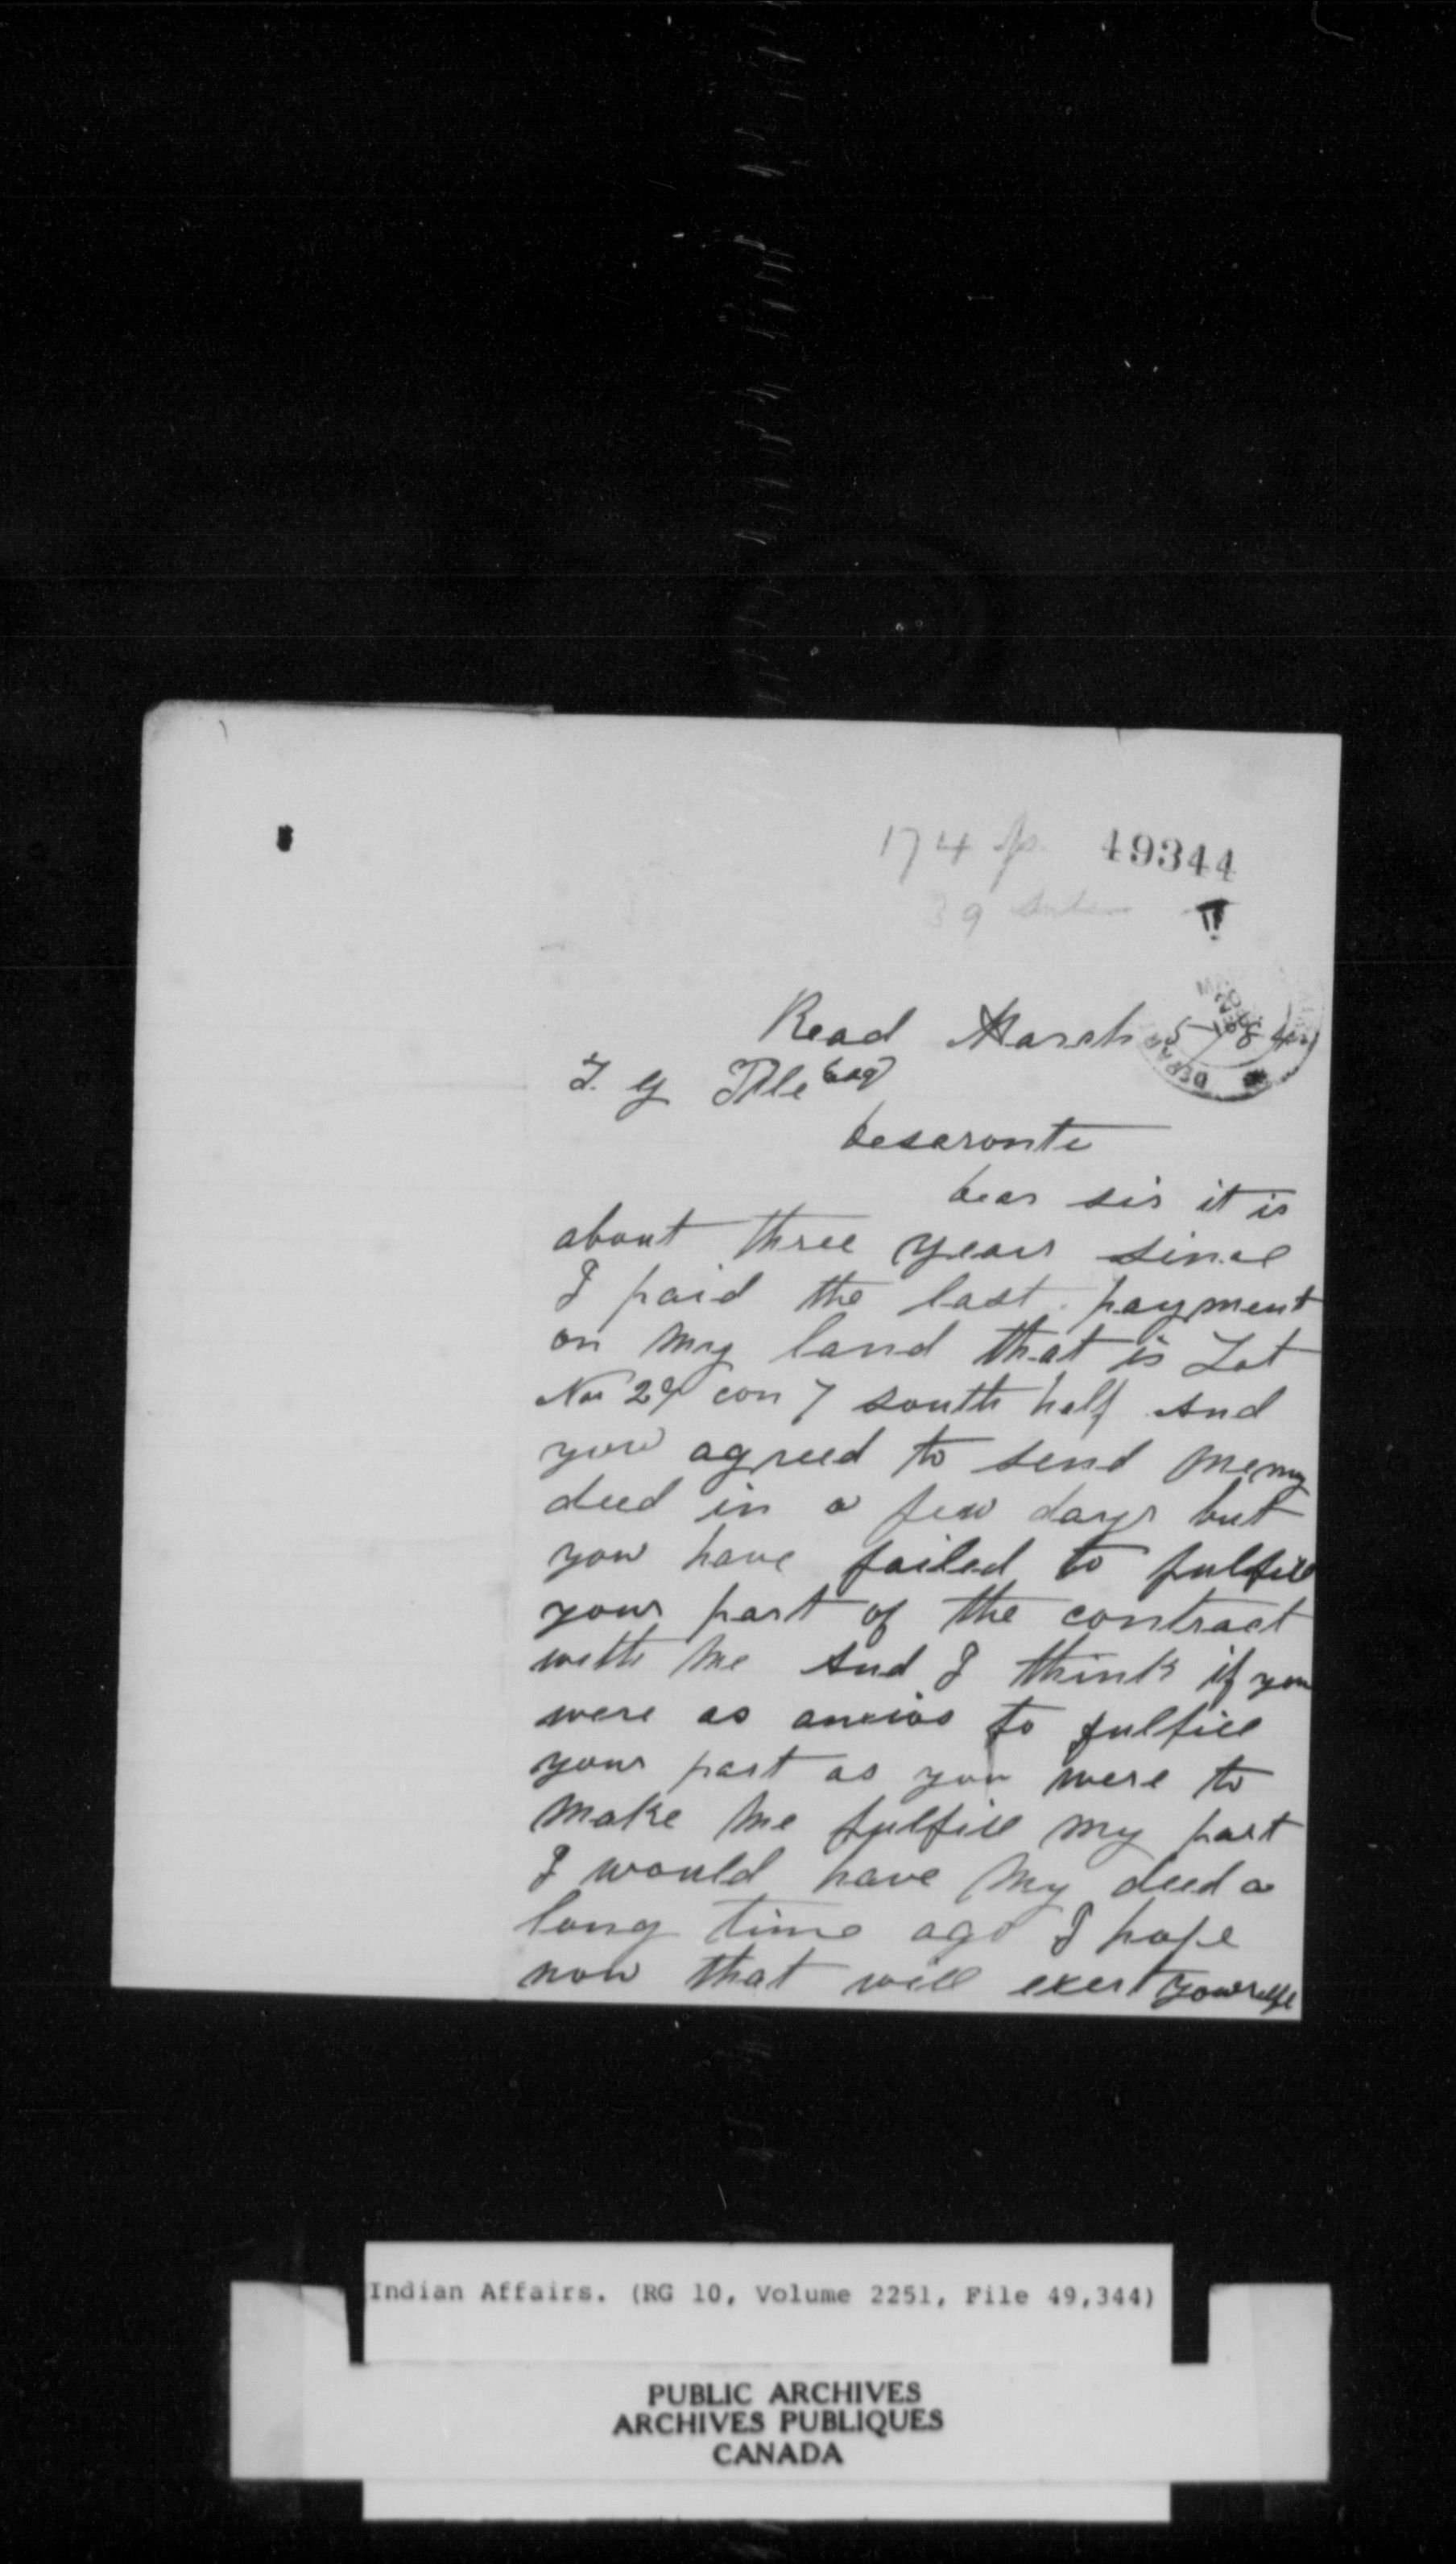 174
49344
39
Read March 5 / 84
T. G Pile Esq
Deseronto
Dear sir it is
about three years since
I paid the last payment
on my land that is Lot
No 29 con 7 south half And
you agreed to send me my
deed in a few days but
you have failed to fulfill
your part of the contract
with me And I think if you
were as anxios to fulfill
your part as you were to
make me fulfill my part
I would have my deed a
long time ago I hope
now that will exert yourselfe
Indian Affairs. (RG 10, Volume 2251, File 49,344)
PUBLIC ARCHIVES
ARCHIVES PUBLIQUES
CANADA